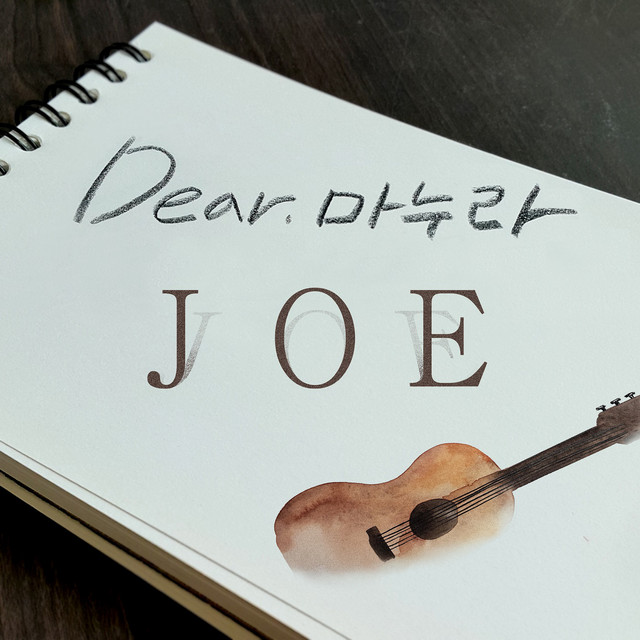 Dear. 마누라
JOE